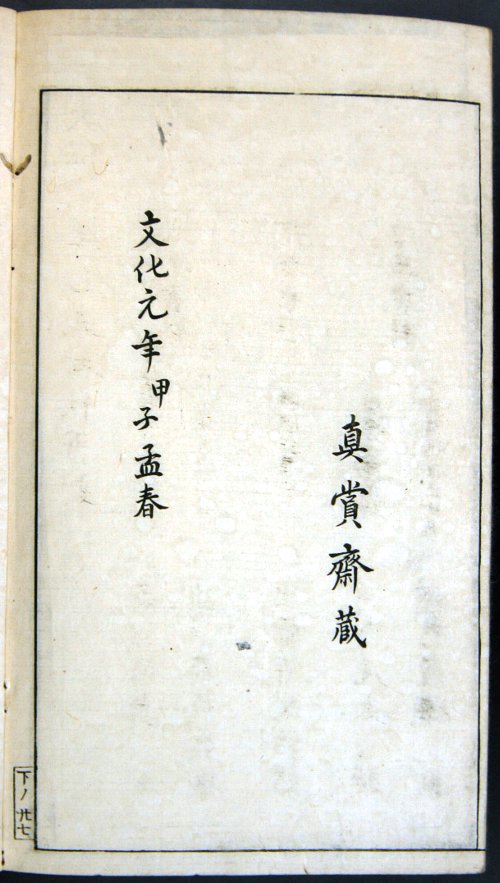 真賞齋蔵
文化元年甲子孟春
下ノ廿七